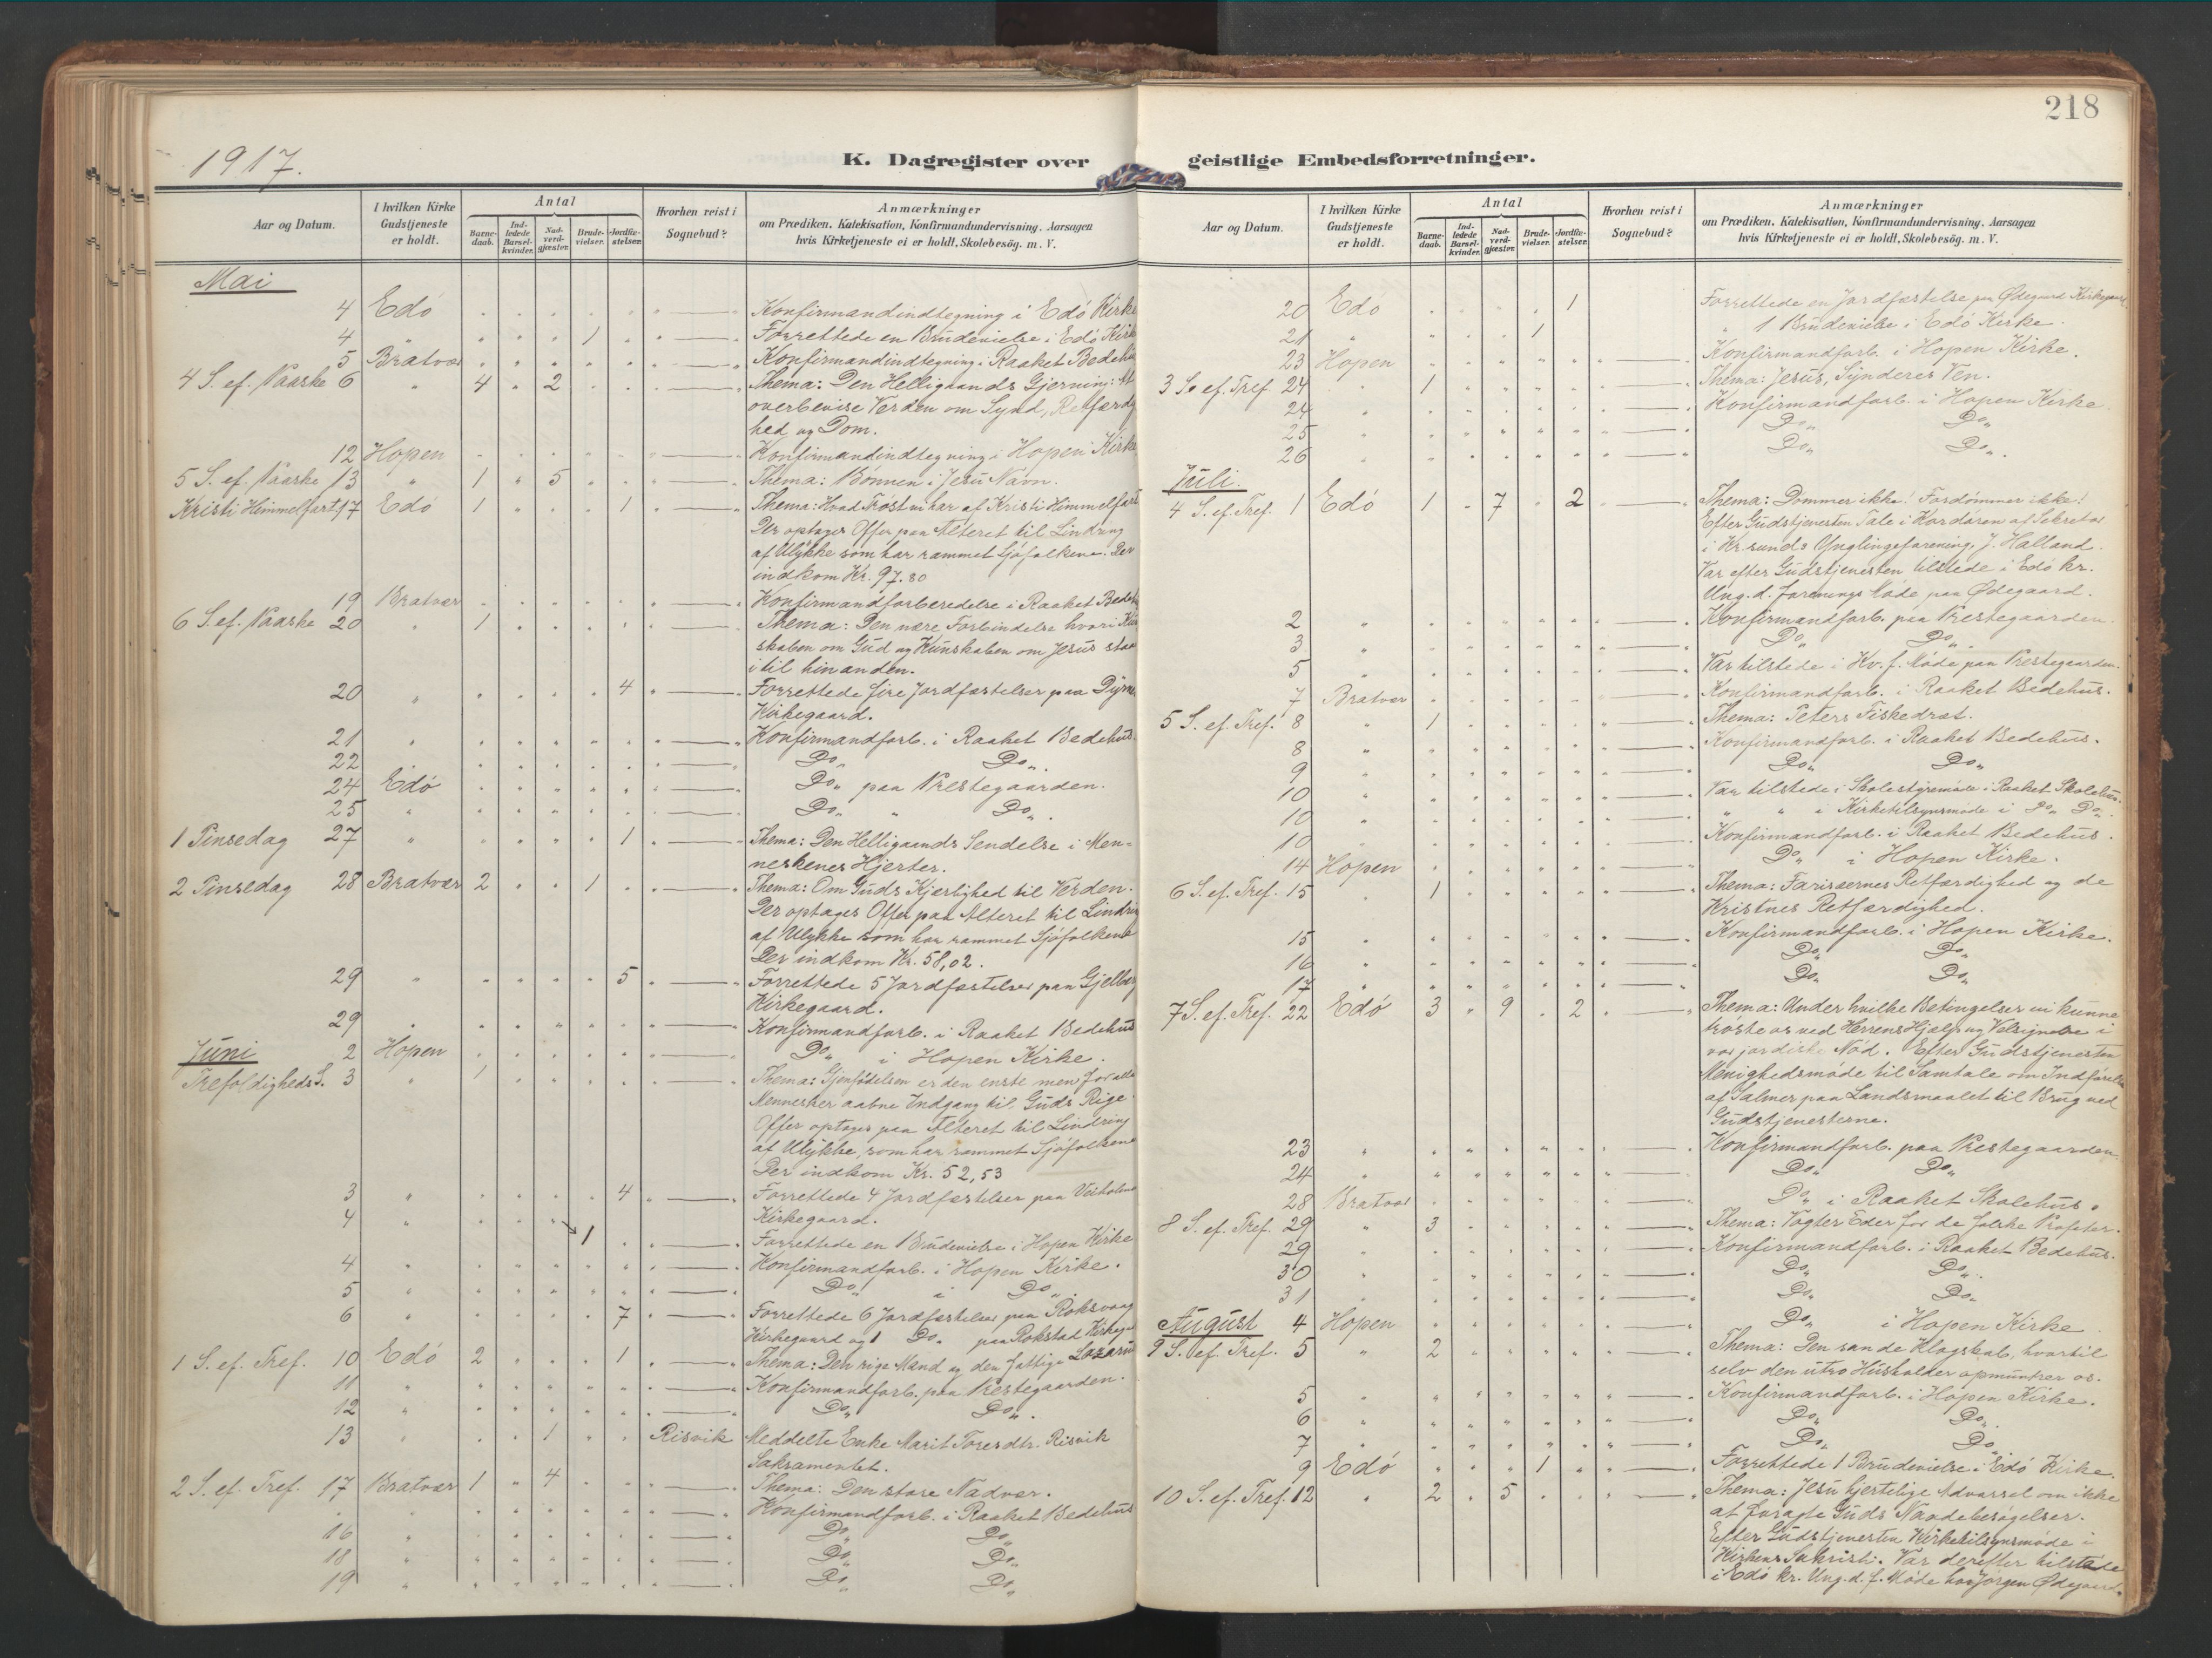 218
1917.
K. Dagregister over geistlige Embedsforretninger.
Aar og Datum. I hvilken Kirke Gudstjeneste er holdt. Antal Barnedaab. Indledede Barselkvinder. Nadverdgjæster. Brudevielser. Jordfæstelser. Hvorhen reist i Sognebud? Anmærkninger
om Prædiken, Katekisation, Konfirmandundervisning, Aarsagen
hvis Kirketjeneste ei er holdt, Skolebesög. m. V.
Mai
4 Edö Konfirmandindtegning i Edö Kirke
4 " 1 Forrettede en Brudevielse i Edö Kirke
5 Bratvær Konfirmandindtegning i Raaket Bedehus
4 S. ef. Paaske 6 " 4 2 Thema: Den Helligaands Gjerning: At
overbevise Verden om Synd, Retfærdig
hed og Dom.
12 Hopen Konfirmandindtegning i Hopen Kirke
5 S. ef. Paaske 13 " 1 5 Thema: Bönnen i Jesu Navn.
Kristi Himmelfart 17 Edö 1 1 Thema: Hvad Tröst vi har af Kristi Himmelfart
Der optages Offer paa Alteret til Lindring
af Ulykke som har rammet Sjöfolkene. Der
indkom Kr. 97.80
19 Bratvær Konfirmandforberedelse i Raaket Bedeh
6 S. ef. Paaske 20 " 1 Thema: Den nære Forbindelse hvori Kun
skaben om Gud og Kunskaben om Jesus staar
i til hinanden.
20 " 4 Forrettede fire Jordfæstelser paa Dyrnes
Kirkegaard.
21 " Konfirmandforb. i Raaket Bedehus.
22 Do" Do".
24 Edö Do" paa Prestegaarden.
25 " Do" " Do".
1 Pinsedag 27 " 1 Thema: Den Helligaands Sendelse i Men-
neskenes Hjerter.
2 Pinsedag 28 Bratvær 2 1 Thema: Om Guds Kjærlighed til Verden.
Der optages Offer paa Alteret til Lindring
af Ulykke som har rammet Sjöfolkene
Der indkom Kr. 58,02.
29 " 5 Forrettede 5 Jordfæstelser paa
Kirkegaard.
29 " Konfirmandforb. i Raaket Bedehus
Juni 2 Hopen Do" i Hopen Kirke.
Trefoldigheds S. 3 " 1 Thema: Gjenfödelsen er den eneste men for alle
Mennesker aabne Indgang til Guds Rige.
Offer optages paa Alteret til Lindring
af Ulykke, som har rammet Sjöfolkene
Der indkom Kr. 52,53
3 " 4 Forrettede 4 Jordfæstelser paa Veiholmen
Kirkegaard.
4 " 1 Forrettede en 1 Brudevielse i Hopen Kirke
4 " Konfirmandforb. i Hopen Kirke.
5 " Do" i Do".
6 " 7 Forrettede 6 Jordfæstelser paa Roksvaag
Kirkegaard og 1 Do" paa Rokstad Kirkeg
1 S. ef. Tref. 10 Edö 2 1 Thema: Den rige Mand og den fattige Lazarus
11 " Konfirmandforb. paa Prestegaarden.
12 " Do" Do".
13 " 1 Risvik Meddelte Enke Marit Toresdtr. Risvik
Sakramentet.
2 S. ef. Tref. 17 Bratvær 1 4 Thema: Den store Nadver.
" " Konfirmandforb. i Raaket Bedehus
16 " Do" Do"
18 " Do" Do"
19 " Do" Do"
Aar og Datum. I hvilken Kirke Gudstjeneste er holdt. Antal Barnedaab. Indledede Barselkvinder. Nadverdgjæster. Brudevielser. Jordfæstelser. Hvorhen reist i Sognebud? Anmærkninger
om Prædiken, Katekisation, Konfirmandundervisning, Aarsagen
hvis Kirketjeneste ei er holdt, Skolebesög. m. V.
20 Edö 1 Forrettede en Jordfæstelse paa Ødegaard Kirkegaard
21 " 1 " 1 Brudevielse i Edö Kirke.
23 Hopen Konfirmandforb. i Hopen Kirke.
3 S. ef. Tref. 24 " 1 Thema: Jesus, Synderes Ven.
24 " Konfirmandforb. i Hopen Kirke.
25 " Do" Do"
26 " Do" Do".
Juli.
4 S. ef. Tref. 1 Edö 1 7 2 Thema: Dommer ikke! Fordömmer ikke!
Efter Gudstjenesten Tale i Kordören af Sekretær
i Kr.sunds Ynglingeforening, J. Halland.
Var efter Gudstjenesten tilstede i Edö kr.
Ung.d. forenings Möde paa Ødegaard.
2 " Konfirmandforb. paa Prestegaarden.
3 " Do" Do".
5 " Var tilstede i Kv. f. Möde paa Prestegaarden.
7 Bratvær Konfirmandforb. i Raaket Bedehus.
5 S. ef. Tref. 8 " 1 Thema: Peters Fiskedræt.
8 " Konfirmandforb. i Raaket Bedehus.
9 " Do" Do"
10 " Var tilstede i Skolestyremöde i Raaket Skolehus.
10 " " " i Kirketilsynsmöde i Do" Do".
10 " Konfirmandforb. i Raaket Bedehus.
14 Hopen Do" i Hopen Kirke.
6 S. ef. Tref. 15 " 1 Thema: Farisæernes Retfærdighed og de
Kristnes Retfærdighed.
15 " Konfirmandforb. i Hopen Kirke.
16 " Do" Do"
17 " Do" Do"
7 S. ef. Tref. 22 Edö 3 9 2 Thema: Under hvilke Betingelser vi kunne
tröste os ved Herrens Hjælp og Velsignelse i
vor jordiske Nöd. Efter Gudstjenesten
Menighedsmöde til Samtale om Indförelse
af Salmer paa Landsmaalet til Brug ved
Gudstjenesterne.
23 " Konfirmandforb. paa Prestegaarden.
24 " Do" Do"
28 Bratvær Do" i Raaket Skolehus.
8 S. ef. Tref. 29 " 3 Thema: Vogter Eder for de falske Profeter.
29 " Konfirmandforb. i Raaket Bedehus.
30 " Do" Do".
31 " Do" Do"
August 4 Hopen Do" i Hopen Kirke.
9 S. ef. Tref. 5 " 2 Thema: Den sande Klogskab, hvortil
selv den utro Husholder opmuntrer os.
5 " Konfirmandforb. i Hopen Kirke.
6 " Do" Do".
7 " Do" Do"
9 Edö 1 Forrettede 1 Brudevielse i Edö Kirke.
10 S. ef. Tref. 12 " 2 5 Thema: Jesu hjertelige Advarsel om ikke
at foragte Guds Naadebesögelser.
Efter Gudstjenesten Kirketilsynsmöde i
Kirkens Sakristi. Var derefter tilstede
i Edö kr. Ung.d. f. Möde hos Jörgen Ødegaard.